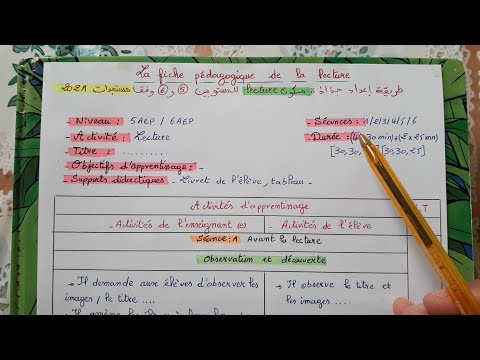 La fiche pédagogique de la lecture
طريقة إعداد جذاذة مكون lecture للمستويين ⑤ و ⑥ وفقا مستجدات 2021
- Niveau : 5AEP / 6AEP
- Séances : 1/2/3/4/5/6
- Activité : Lecture
- Durée : 30 min)+(2x25mn)
- Titre : ..........
[30,30, [30,30,25]
- Objectifs d'apprentissage : -
- Supports didactiques : - Livret de l'élève, tableau -
Activités d'apprentissage
T
- Activités de l'enseignant (e)
- Activités de l'élève
Séance : 1 Avant la lecture
Observation et découverte
→ Il demande aux élèves d'observer les
images / le titre .....
→ Il observe le titre et
les images ....
→ Il amène les élèves à